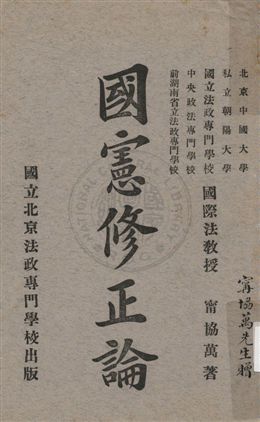 北京中國大學
私立朝陽大學
國立法政專門學校
中央政法專門學校
前湖南省立法政專門學校
國際法教授 甯協萬著
甯協萬先生贈
國憲修正論
國立北京法政專門學校出版